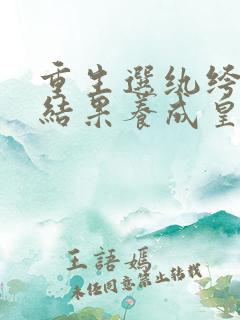 重生選紈絝
結果養成皇
王語嫣
未經同意禁止轉載